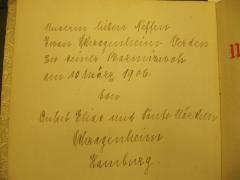 Unserm lieben Neffen
Iwan Schragenheim Verden
zu seiner Barmizwoh
am 10 März 1906.
von
Onkel Elias und Tante Röschen
Schragenheim
Hamburg.